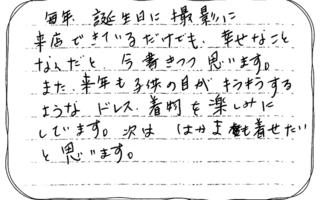 毎年、誕生日に撮影に
来店できているだけでも、幸せなこと
なんだと、今書きつつ思います。
また、来年も子供の目がキラキラする
ようなドレス、着物を楽しみに
しています。次は はかまも着せたい
と思います。